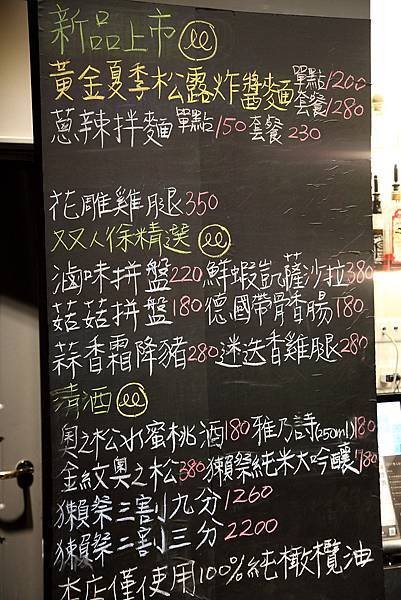 新品上市
黃金夏季松露炸醬麵 單點1200 套餐1280
蔥辣拌麵 單點150 套餐230
花雕雞腿350
双人徐精選
滷味拼盤220 鮮蝦凱薩沙拉380
菇菇拼盤180 德國帶骨香腸180
蒜香霜降豬280 迷迭香雞腿280
清酒
奥之松水蜜桃酒180 雅乃詩(250ml)180
金紋奥之松380 獺祭純米大吟釀780
獺祭三割九分1260
獺祭二割三分2200
本店僅使用100%純橄欖油